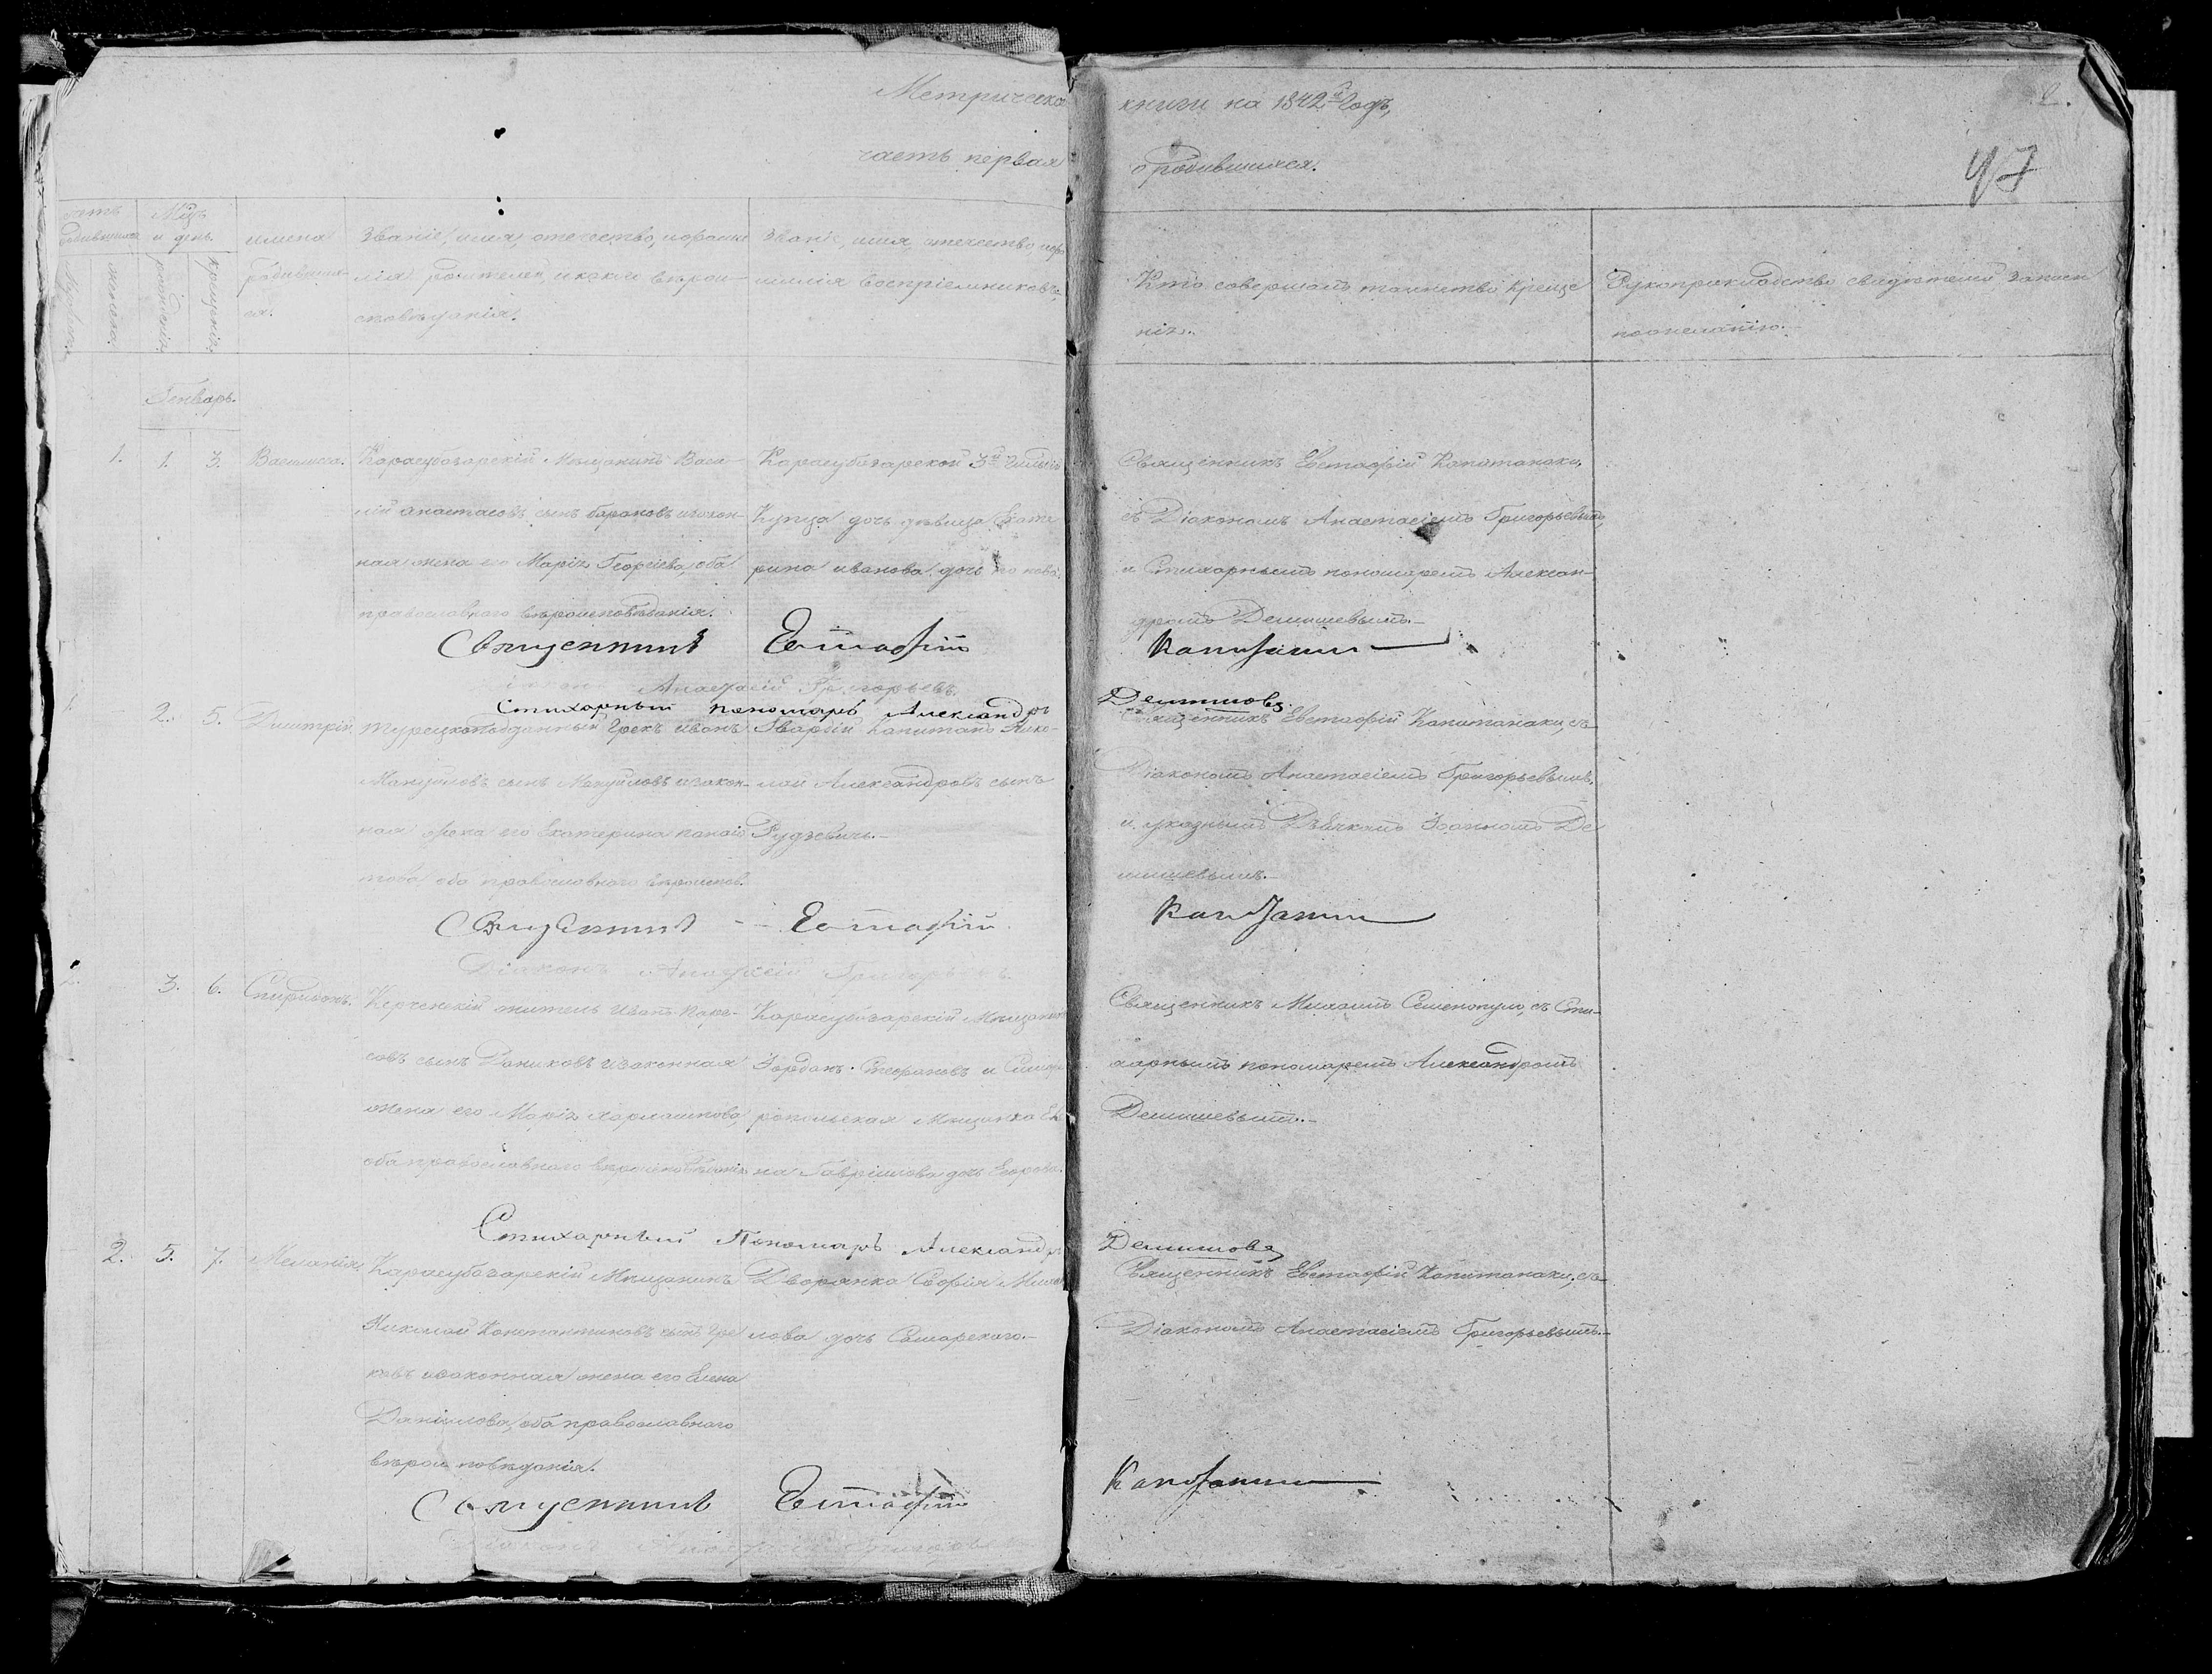 Метрической книги на 1842й Годъ,
часть первая о родившихся.
2.
47
Счетъ родившихся
Мѣсяцъ и день.
имена родившихся.
Званіе, имя, отечество, и фамилія родителей, и какого вѣроисповѣданія.
Званіе, имя, отечество, и фамилія воспріемниковъ,
Кто совершалъ таинство крещенія.
Рукоприкладство свидѣтелей записи по желанію.
мужеска.
женска.
рожденія.
крещенія.
Генварь.
1. 1. 3. Василиса.
Карасубазарскій Мѣщанинъ Васи-
лій Анастасовъ сынъ Барановъ и закон-
ная жена его Марія Георгіева, оба
православнаго вѣроисповѣданія.
Карасубазарской 3й Гильдіи
Купца дочь дѣвица Екате
рина Иванова дочь
Священникъ Евстафій Капитанаки,
съ Діакономъ Анастасіемъ Григорьевымъ,
и Стихарнымъ пономаремъ Алексан-
дромъ Демишевымъ.
Священникъ Евстафій Капитанаки
Анастасій Григорьевъ
Стихарный пономарь Александръ Демишовъ
1. 2. 5. Димитрій.
Турецкоподданный Грекъ Иванъ
Мануйловъ сынъ Мануйловъ и закон-
ная жена его Екатерина Панаіо
това оба православнаго вѣроисповѣ.
Гвардіи Капитанъ Нико-
лай Александровъ сынъ
Рудзевичъ.
Священникъ Евстафій Капитанаки, съ
Діакономъ Анастасіемъ Григорьевымъ,
и указнымъ Дьячкомъ Іоанномъ Де
мишевымъ.
Священникъ - Евстафій Капитанаки
Діаконъ Анастасій Григорьевъ.
2. 3. 6. Спиридонъ.
Керченскій житель Иванъ
совъ сынъ Даниковъ и законная
жена его Марія Харлампова,
оба православнаго вѣроисповѣданія
Карасубазарскій Мѣщанинъ
Іорданъ Стефановъ и Симфе
ропольская Мѣщанка Еле
на Гавріилова дочь Егорова.
Священникъ Михаилъ Семенопуло, съ Сти-
харнымъ пономаремъ Александромъ
Демишевымъ.
Стихарный Пономарь Александръ Демишовъ
2. 5. 7. Меланія.
Карасубазарскій Мѣщанинъ
Николай Константиновъ сынъ Гре
ковъ и законная жена его Елена
Даніилова, оба православнаго
вѣроисповѣданія.
Дворянка Софія Михаи
лова дочь Самарскаго.
Священникъ Евстафій Капитанаки, съ
Діакономъ Анастасіемъ Григорьевымъ.
Священникъ Евстафій Капитанаки
Діаконъ Анастасій Григорьевъ